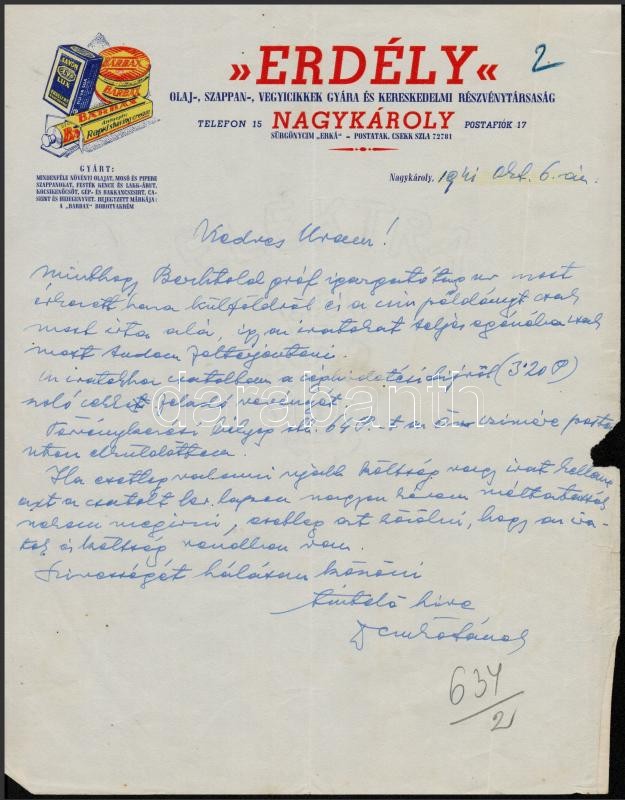 »ERDÉLY«
2
OLAJ-, SZAPPAN-, VEGYICIKKEK GYÁRA ÉS KERESKEDELMI RÉSZVÉNYTÁRSASÁG
TELEFON 15 NAGYKÁROLY POSTAFIÓK 17
SÜRGÖNYCIM „ERKÁ” – POSTATAK. CSEKK SZLA 72781
SAVON
LUX
BARBAX
BARBAX
Rapid shaving cream
GYÁRT:
MINDENFÉLE NÖVÉNYI OLAJAT, MOSÓ ÉS PIPERE
SZAPPANOKAT, FESTÉK KENCE ÉS LAKK-ÁRUT,
KOCSIKENŐCSÖT, GÉP- ÉS BAKKANCSZSIRT, CA-
SEINT ÉS HIDEGENYVET. BEJEGYZETT MÁRKÁJA:
A „BARBAX” BOROTVAKRÉM
Nagykároly, 1941 Okt. 6.-án.
Kedves Uram!
Minthogy Berchtold gróf igazgatósági ur most
érkezett haza külföldről és a cím példányt csak
most irta alá, igy az iratokat teljes egészében csak
most tudom felterjeszteni.
Az iratokhoz csatoltam a (3·20 P)
szóló
Törvénykezési bélyeg 64 P.-t az címére posta
uton elküldöttem.
Ha esetleg valami ujabb költség vagy irat kellene
azt a csatolt lev. lapon nagyon kérem méltóztassék
nekem megirni, esetleg azt közölni, hogy az ira-
tok és költség rendben van.
Szivességét hálásan köszöni
tisztelő hive
634/2
darabanth